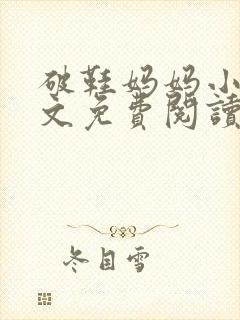 破鞋妈妈小
文免費閱讀
冬目雪